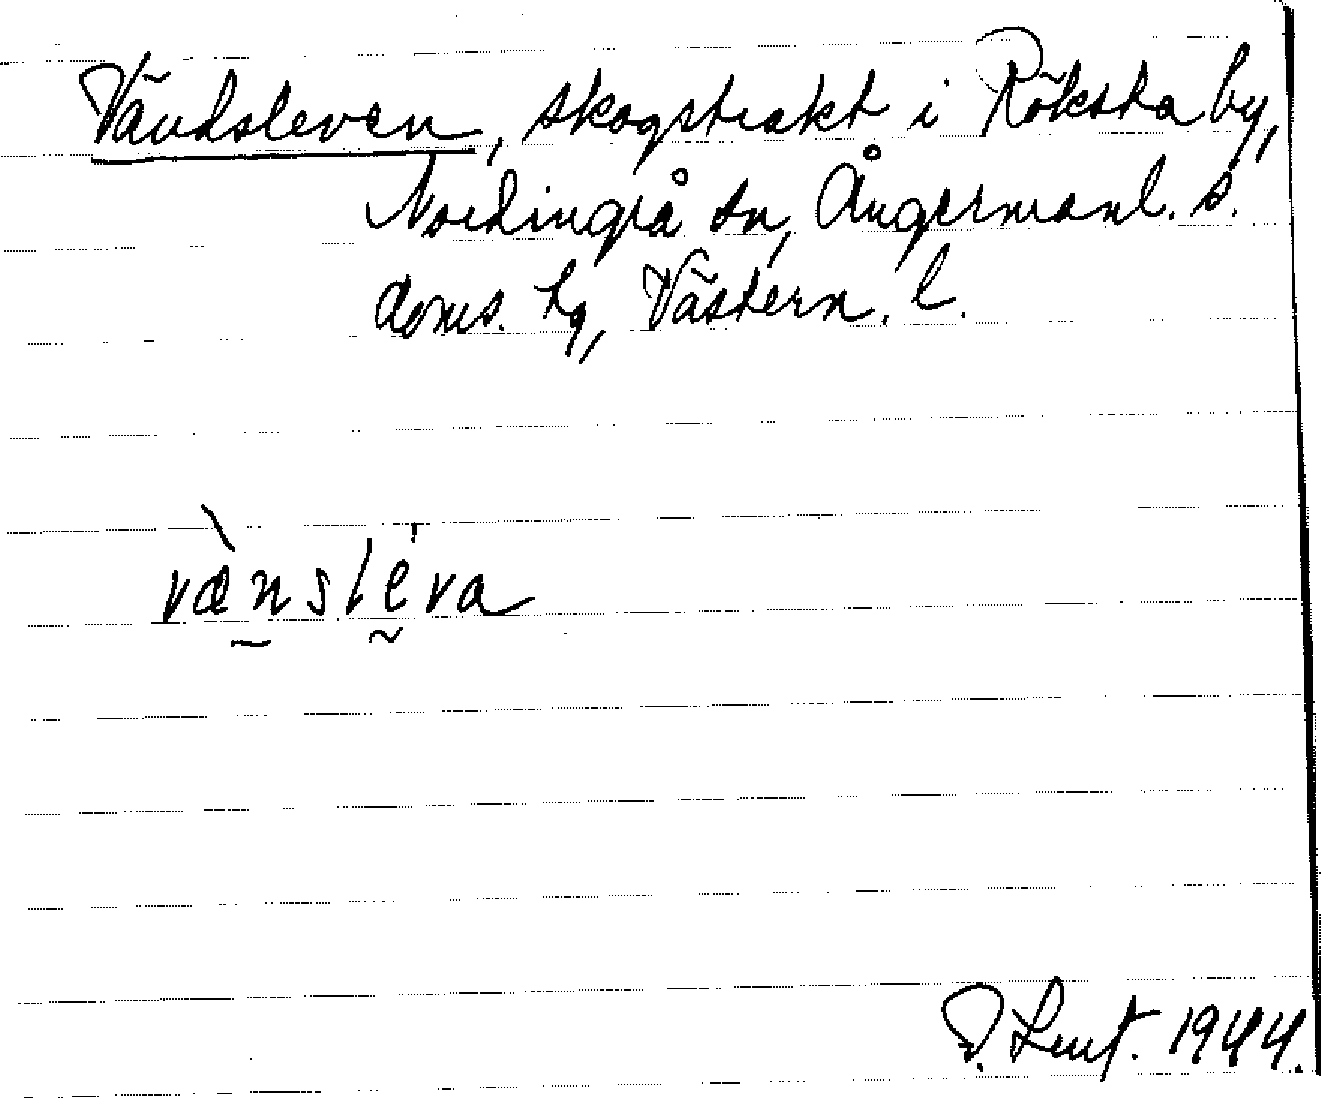 Vändsleven, skogstrakt i Röksta by,
Nordingrå sn, Ångermanl. s.
doms. hg, Västern. l.
vænsleva
1944.